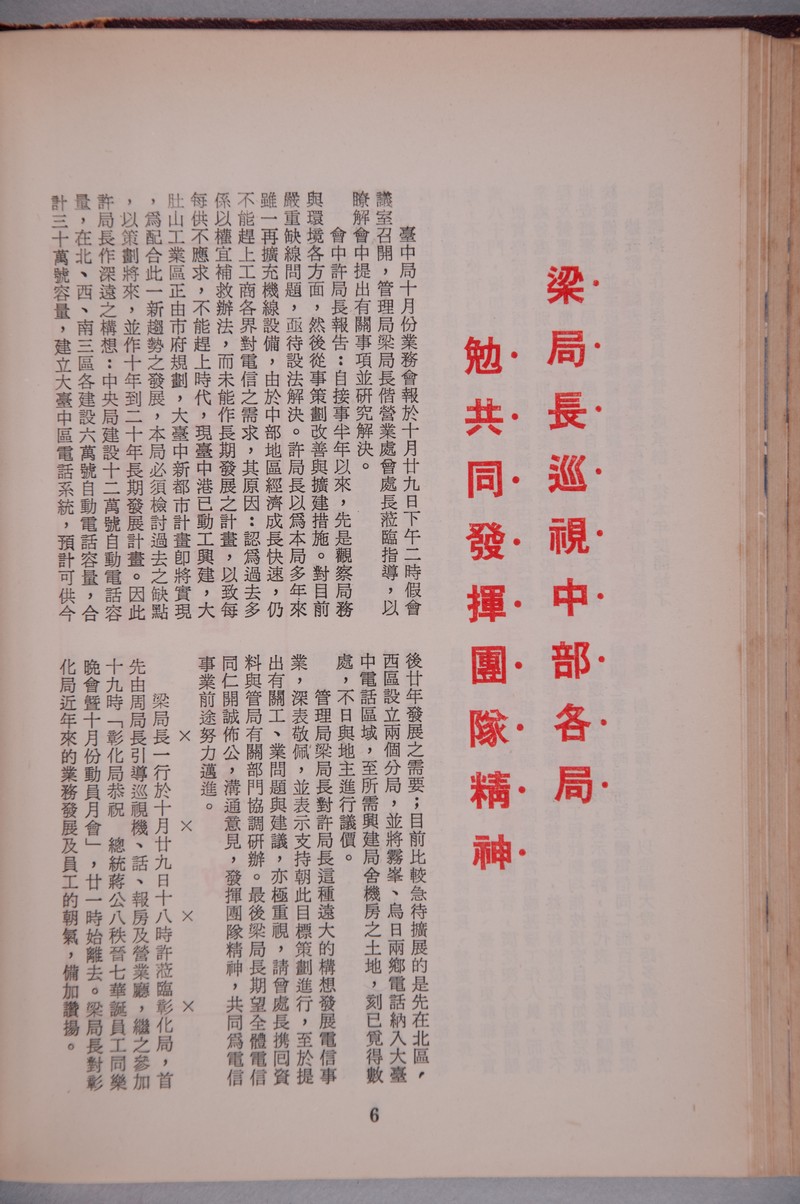 梁局長巡視中部各局
勉共同發揮團隊精神
臺中局十月份業務會報於十月廿九日下午二時假會
議室召開，管理局梁局長偕營業處曾處長蒞臨指導，以
瞭解會中提出有關事項並研究解決。
會中許局長報告：自接事半年以來，先是觀察局務
與環境各方面，然後從事策劃改善與擴建措施。對目前
嚴重缺線問題，亟待設法解決。許局長以爲本局多年來
雖一再擴充機線設備，由於中部地區經濟成長快速，仍
不能趕上工商各界對電信之需求，其原因：認爲過去多
係以權宜補救辦法，而未能作長期發展之計畫，以致每
每供不應求，不能趕上時代，現臺中港已動工興建，大
肚山工業區正由市府規劃，大臺中新都市計畫卽將實現
，爲配合此一新趨勢之發展，本局必須檢討過去之缺點
，以策劃將來，並作十年到二十年長期發展計畫。因此
許局長作深遠之構想：中央局建設十二萬號自動電話容
量，在北、西、南三區各建設六萬號自動電話容量，合
計三十萬號容量，建立大臺中區電話系統，預計可供今
後廿年發展之需要；目前比較急待擴展的是先在北區，
西區設立兩個分局，並將霧峯、烏日兩鄉電話納入大臺
中電話區域，至所需興建局舍機房之土地，刻已覓得數
處，不日與地主進行議價。
管理局梁局長對許局長這種遠大的構想發展電信事
業，深表敬佩，並表示支持朝此目標策劃進行，至於提
出有關工、業問題與建議，亦極重視，請曾處長携囘資
料與管局有關部門協調研辦。最後梁局長期望全體電信
同仁開誠佈公，溝通意見，發揮團隊精神，共同爲電信
事業前途努力邁進。
×　×　×　×
梁局長一行於十月廿九日十八時許蒞臨彰化局，首
先由周局長引導巡視機、話、報房及營業廳，繼之參加
十九時「彰化局恭祝　總統蔣公八秩晉七華誕員工同樂
晚會暨十月份動員月會」，廿一時始離去。梁局長對彰
化局近年來的業務發展及員工的朝氣，備加讚揚。
6